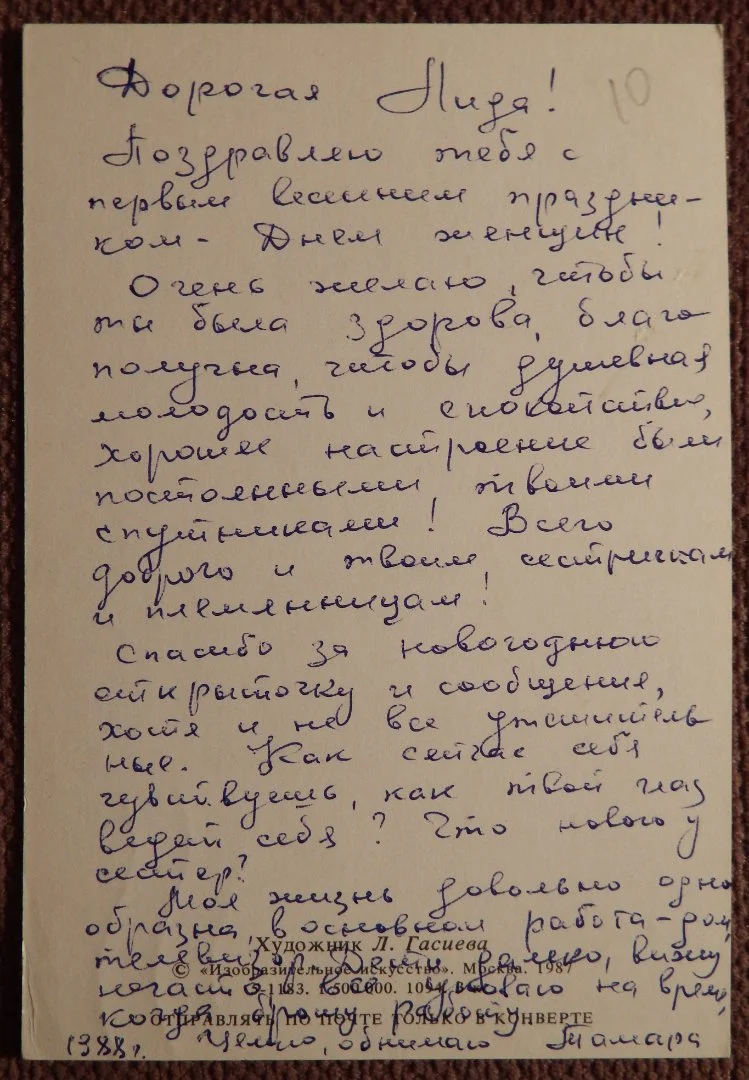 Дорогая Лида!
10
Поздравляю тебя с
первым весенним праздни-
ком - Днем женщин!
Очень желаю, чтобы
ты была здорова, благо
получна, чтобы душевная
молодость и спокойствие,
хорошее настроение были
постоянными твоими
спутниками! Всего
доброго и твоим сестричкам
и племянницам!
Спасибо за новогоднюю
открыточку и сообщения,
хотя и не все утешитель
ные. Как сейчас себя
чувствуешь, как твой глаз
ведет себя? Что нового у
сестер?
Моя жизнь довольно одно
образна, в основном работа - дом,
Художник Л. Гасиева
телевизор. Дети далеко, вижу
© «Изобразительное искусство». Москва. 1987
нечасто. Все на время,
3-1183. 1 500 000.
когда брошу работу.
ОТПРАВЛЯТЬ ПО ПОЧТЕ ТОЛЬКО В КОНВЕРТЕ
1988 г. Целую, обнимаю Тамара